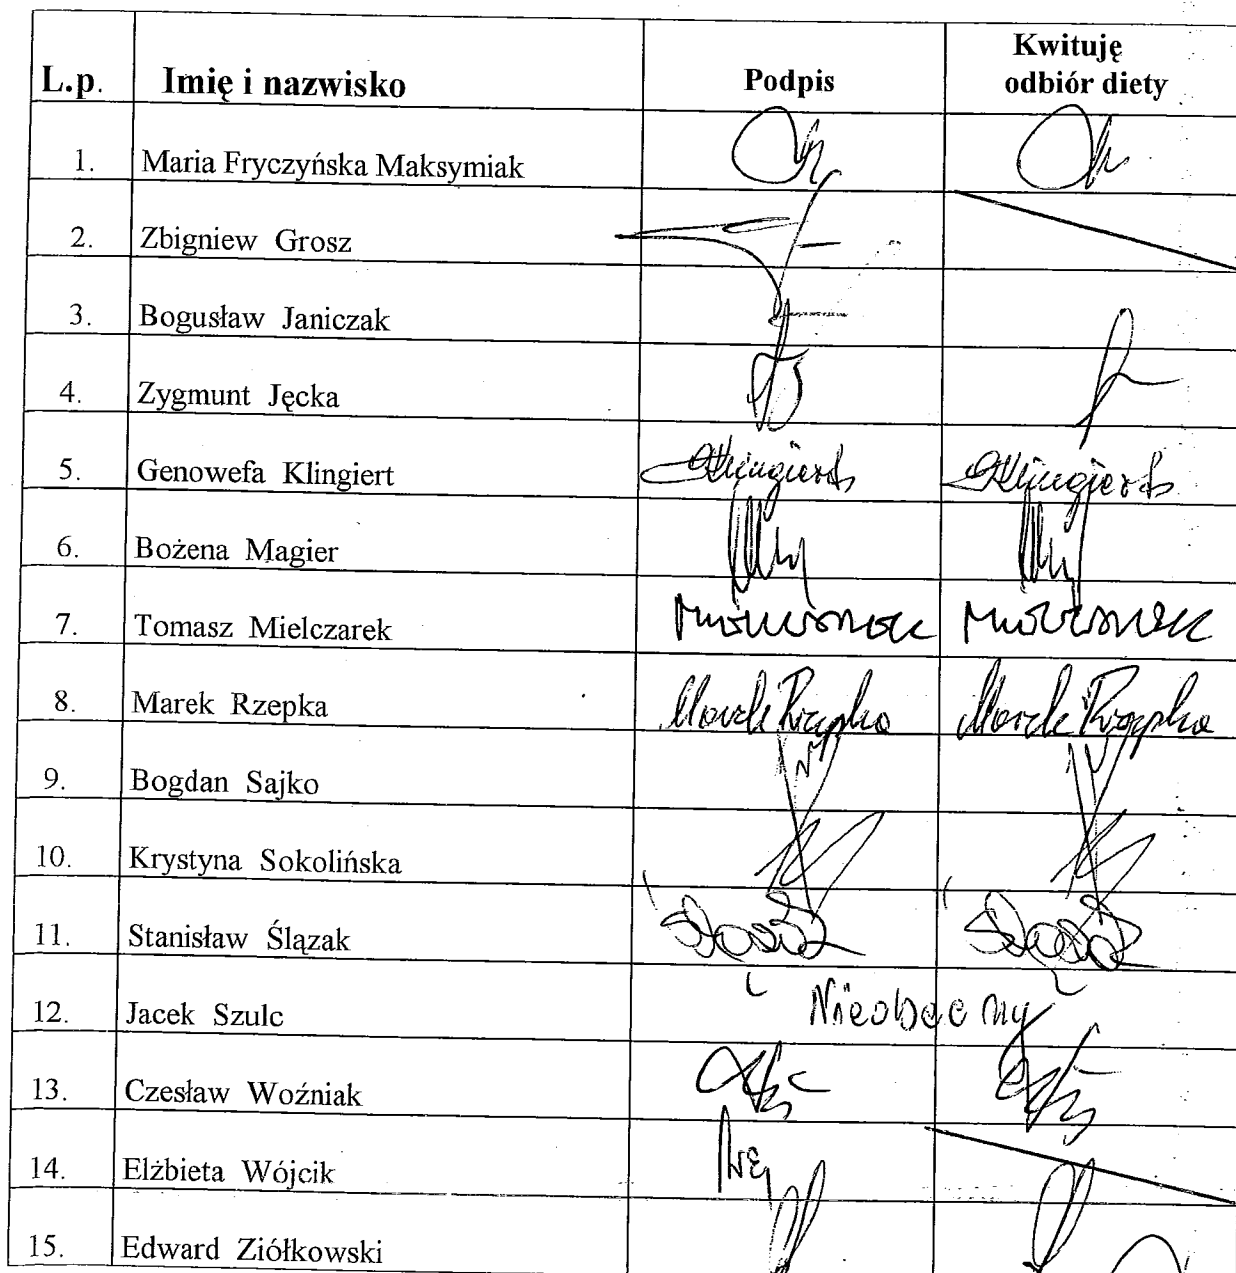 L.p. Imię i nazwisko Podpis Kwituję odbiór diety
1. Maria Fryczyńska Maksymiak
2. Zbigniew Grosz
3. Bogusław Janiczak
4. Zygmunt Jęcka
5. Genowefa Klingiert GKlingiert GKlingiert
6. Bożena Magier
7. Tomasz Mielczarek Mielczarek Mielczarek
8. Marek Rzepka Marek Rzepka Marek Rzepka
9. Bogdan Sajko
10. Krystyna Sokolińska
11. Stanisław Ślązak
12. Jacek Szulc Nieobecny
13. Czesław Woźniak
14. Elżbieta Wójcik
15. Edward Ziółkowski